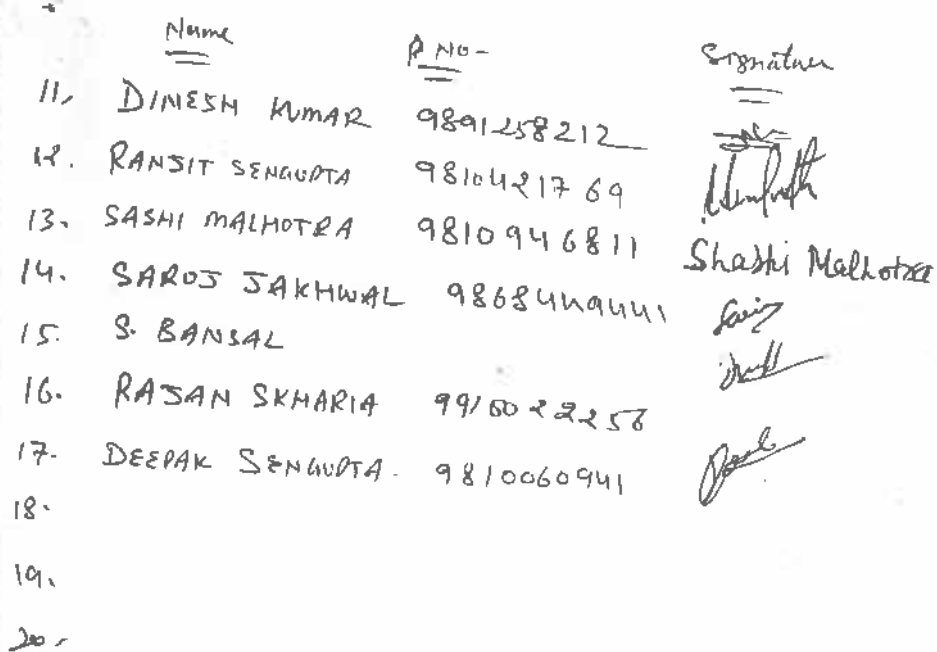 Name P NO- Signature
11, DINESH KUMAR 9891258212
12. RANJIT SENGUPTA 9810421769
13. SASHI MALHOTRA 9810946811 Shashi Malhotra
14. SAROJ JAKHWAL 9868449441
15. S. BANSAL
16. RAJAN SKHARIA
17. DEEPAK SENGUPTA. 9810060941
18.
19.
20.